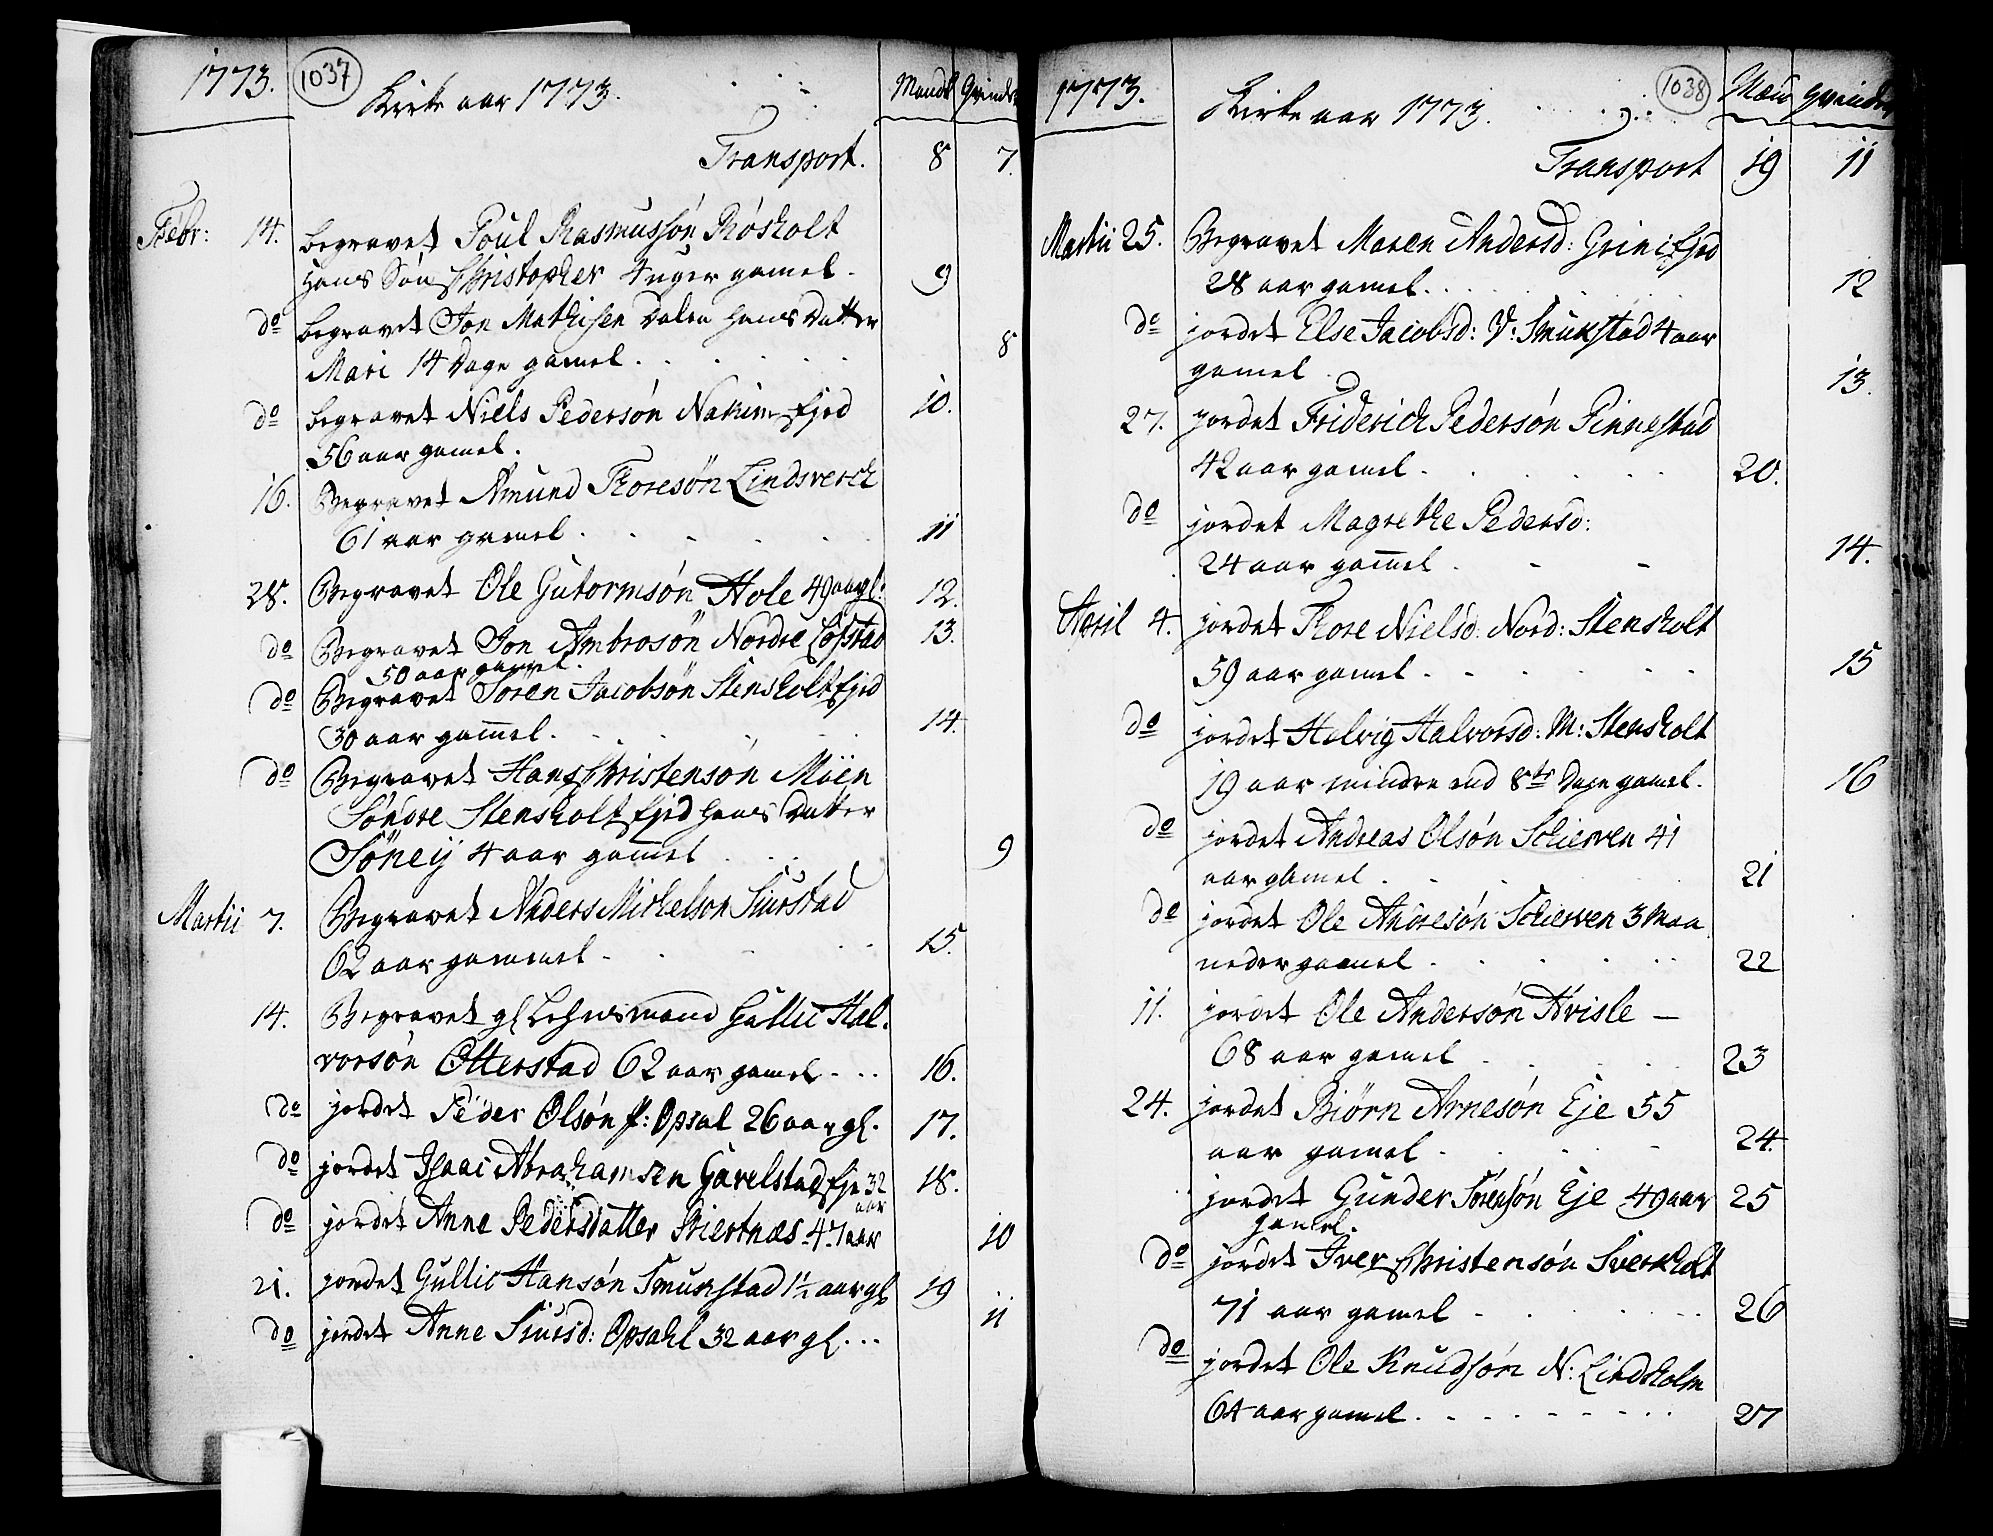 1773.
1037
Kirke aar 1773.
Mandk Qvindk
Transport. 8 7.
Febr: 14. begravet Poul Rasmussøn Røsholt
Hans Søn Christopher 4 uger gamel. 9
do begravet Jon Mathisen Dalen hans Datter
Mari 14 Dage gamel. 8
do begravet Niels Pedersøn Nakim fjrd 10.
56 aar gamel.
16. Begravet Amund Thoresøn Lindsverch
61 aar gamel. 11
28. Begravet Ole Gutormsøn Hole 49 aar gl: 12.
do Begravet Jon Ambrosøn Nordre Løfstad 13.
50 aar gamel.
do Begravet Søren Jacobsøn Stensholt fjrd
30 aar gam̄el. 14.
do Begravet Hans Christensøn Möen
Søndre Stensholt fjrd hans Datter
Söneÿ 4 aar gam̄el 9
Martii 7. Begravet Anders Michelson Siurstad
62 aar gammel. 15.
14. Begravet gl Lehnsmand Gullic Hal-
vorsøn Otterstad 62 aar gamel. 16.
do jordet Peder Olsøn p: Opsal 26 aar gl. 17.
do jordet Isaac Abrahamsen Gavelstad fje 32 18.
aar
do jordet Anne Pedersdatter Kiertnæs 47 aar 10
21. jordet Gullic Hansøn Smukstad 1½ aar gl 19
do jordet Anne Siursd: Opsahl 32 aar gl. 11
1773.
Kirke aar 1773.
1038
Mæn Qvindk
Transport 19 11
Martii 25. Begravet Maren Andersd: Grini fjrd
28 aar gamel. 12
do jordet Else Jacobsd: V: Smukstad 4 aar
gamel. 13.
27. jordet Friderich Pedersøn Pinnestad
42 aar gamel. 20.
do jordet Magrethe Pedersd:
24 aar gam̄el. 14.
April 4. jordet Thore Nielsd: Nord: Stensholt
59 aar gamel. 15
do jordet Helvig Halvorsd: M: Stensholt
19 aar mindre end 8te Dage gamel. 16
do jordet Andreas Olsøn Schierven 41
aar gamel. 21
do jordet Ole Andresøn Schierven 3 Maa
neder gamel. 22
11. jordet Ole Andersøn Avisle —
68 aar gamel. 23
24. jordet Biørn Arnesøn Eje 55
aar gamel. 24.
jordet Gunder Sörensøn Eje 49 aar 25
gamel.
do jordet Iver Christensøn Sverkholt
71 aar gamel. 26
do jordet Ole Knudsøn N: Lindholm
64 aar gamel. 27